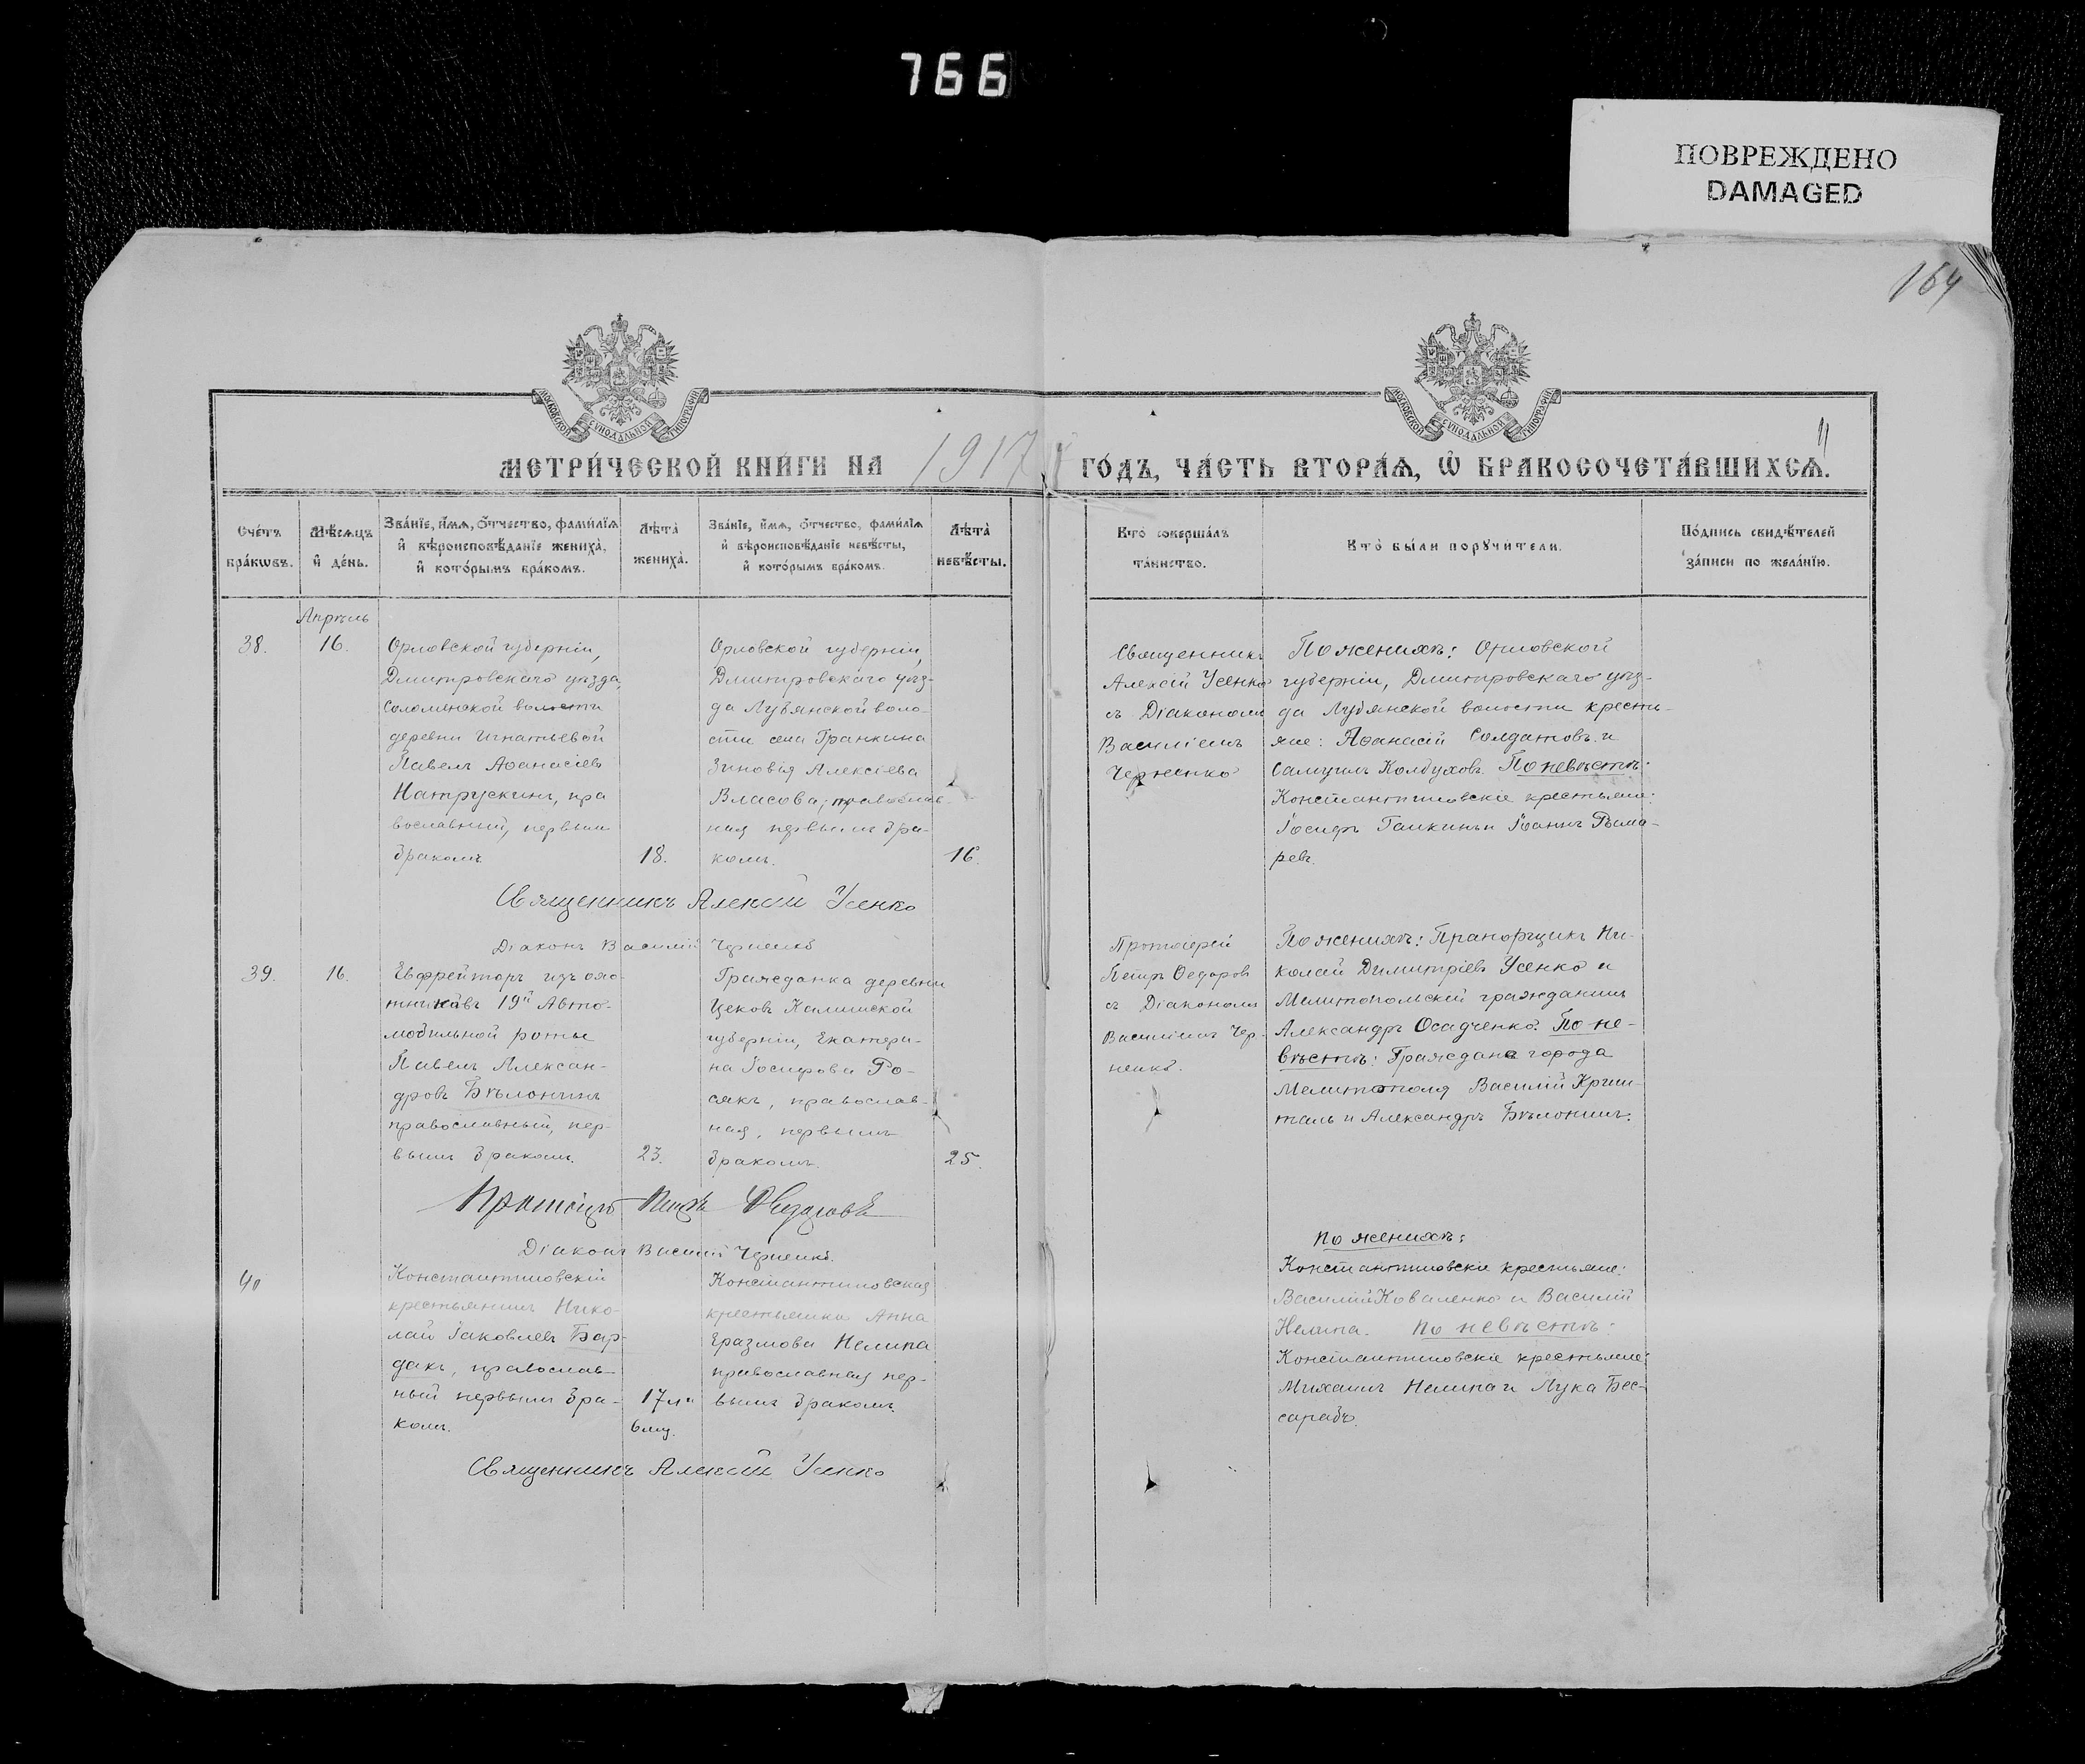 766
ПОВРЕЖДЕНО
DAMAGED
164
МОСКОВСКОЙ СѴНОДАЛЬНОЙ ТИПОГРАФІИ
МОСКОВСКОЙ СѴНОДАЛЬНОЙ ТИПОГРАФІИ
11
МЕТРИ́ЧЕСКОЙ КНИ́ГИ НА 1917 ГО́ДЪ, ЧА́СТЬ ВТОРА́Ѧ, Ѽ БРАКОСОЧЕТА́ВШИХСѦ.
Сче́тъ
бра́кѡвъ.
Мѣ́сѧцъ
и҆ де́нь.
Зва́нїе, и҆́мѧ, ѻ҆́тчество, фами́лїѧ
и҆ вѣроисповѣ́данїе жениха̀,
и҆ кото́рымъ бра́комъ.
Лѣ́та̀
жениха̀.
Зва́нїе, и҆́мѧ, ѻ҆́тчество, фами́лїѧ
и҆ вѣроисповѣ́данїе невѣ́сты,
и҆ кото́рымъ бра́комъ.
Лѣ́та̀
невѣ́сты.
Кто̀ соверша́лъ
та́инство.
Кто̀ бы́ли порꙋчи́тели.
По́дпись свидѣ́телей
за́писи по жела́нїю.
Апрѣль
38.
16.
Орловской губерніи,
Дмитровскаго уѣзда,
Соломенской волости
деревни Игнатьевой
Павелъ Аѳанасіевъ
Натрускинъ, пра
вославный, первымъ
бракомъ
18.
Орловской губерніи,
Дмитровскаго уѣз-
да Лубянской воло-
сти села Гранкина
Зиновія Алексіева
Власова, православ-
ная первымъ бра-
комъ.
16.
Священникъ
Алексій Усенко
съ Діакономъ
Василіемъ
Черненко
По женихѣ: Орловской
губерніи, Дмитровскаго уѣз-
да Лубянской волости кресть-
яне: Аѳанасій Солдатовъ и
Самуилъ Колдуховъ. По невѣстѣ:
Константиновскіе крестьяне:
Іосифъ Галкинъ и Іоаннъ Рыма-
ревъ.
Священникъ Алексій Усенко
Діаконъ Василій Черненко
39.
16.
Ефрейторъ изъ охо-
тниковъ 19й Авто-
мобильной роты
Павелъ Алексан-
дровъ Бѣлонинъ
православный, пер-
вымъ бракомъ.
23.
Гражданка деревни
Цековъ Калишской
губерніи, Екатери-
на Іосифова Ро-
сякъ, православ-
ная, первымъ
бракомъ.
25.
Протоіерей
Петръ Ѳедоровъ
съ Діакономъ
Василіемъ Чер-
ненко.
По женихѣ: Прапорщикъ Ни-
колай Димитріевъ Усенко и
Мелитопольскій гражданинъ
Александръ Осадченко. По не-
вѣстѣ: Граждане города
Мелитополя Василій Криш-
таль и Александръ Бѣлонинъ.
Протоіерей Петръ Ѳедоровъ
Діаконъ Василій Черненко.
40
Константиновскій
крестьянинъ Нико-
лай Іаковлевъ Бар-
дакъ, православ-
ный первымъ бра-
комъ.
17 л. и
6 мц.
Константиновская
крестьянка Анна
Еразмова Нелипа
православная пер-
вымъ бракомъ.
По женихѣ:
Константиновскіе крестьяне:
Василій Коваленко и Василій
Нелипа. По невѣстѣ:
Константиновскіе крестьяне:
Михаилъ Нелипа и Лука Бес-
сарабъ.
Священникъ Алексій Усенко